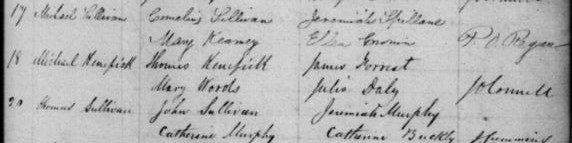 17 Michael Sullivan Cornelius Sullivan Jeremiah Spillane
Mary Kearney Ellen Cronin P. O. Regan
18 Michael Kenefick Thomas Kenefick James Forrest
Mary Woods Julia Daly J O Connell
20 Thomas Sullivan John Sullivan Jeremiah Murphy
Catherine Murphy Catherine Buckly J Cummins